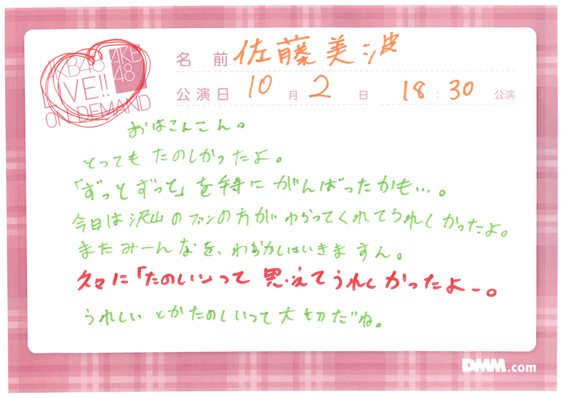 AKB48
LIVE!!
ON DEMAND
AKB
48
名前 佐藤美波
公演日 10月2日 18:30公演
おはこんこん。
とっても たのしかったよ。
「ずっとずっと」を特に がんばったかも…。
今日は沢山のファンの方が わらってくれてうれしかったよ。
またみーんなを、わらかしにいきますん。
久々に「たのしい」って 思えてうれしかったよー。
うれしい とか たのしいって大切だね。
DMM.com